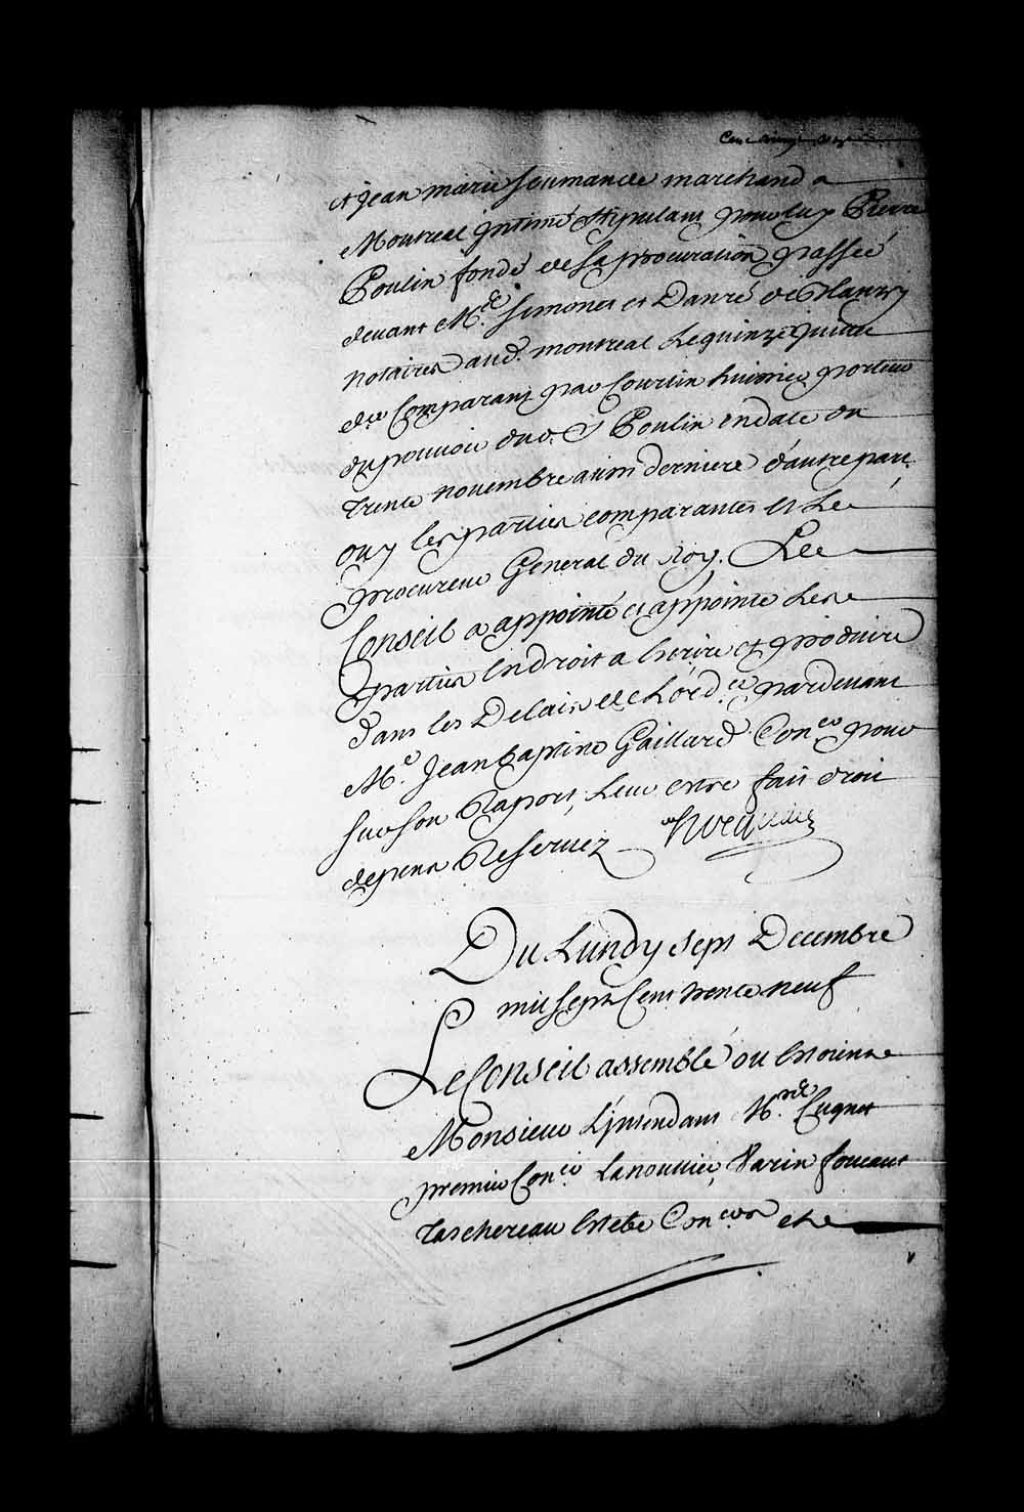 Cent vingt
et Jean marie Soumande marchand a
Montreal Intimé Stipulant pour luy Pierre
Poulin fondé de Sa procuration passée
devant M.es Simonet et Danré de Blanzy
notaires aud. montreal Le quinze Juillet
d.er Comparant par Courtin huissier porteur
du pouvoir dud. S Poulin en date du
trente novembre aussi derniere d'autre part,
ouy les parties comparantes et Le
procureur General du Roy. Le
Conseil a appointé et appointe Les
parties En droit a Ecrire et produire
dans les Delais de L'ord.ce pardevant
M.e Jean Baptiste Gaillard Con.er pour
sur son Raport, Leur estre fait droit
depens Reservez Hocquart
Du Lundy sept Decembre
mil sept Cent trente neuf
Le Conseil assemblé ou Estoient
Monsieur L'Intendant M.rs Cugnet
premier Con.er Lanoullier, Varin foucaut
Taschereau Estebe Con.ers et Le